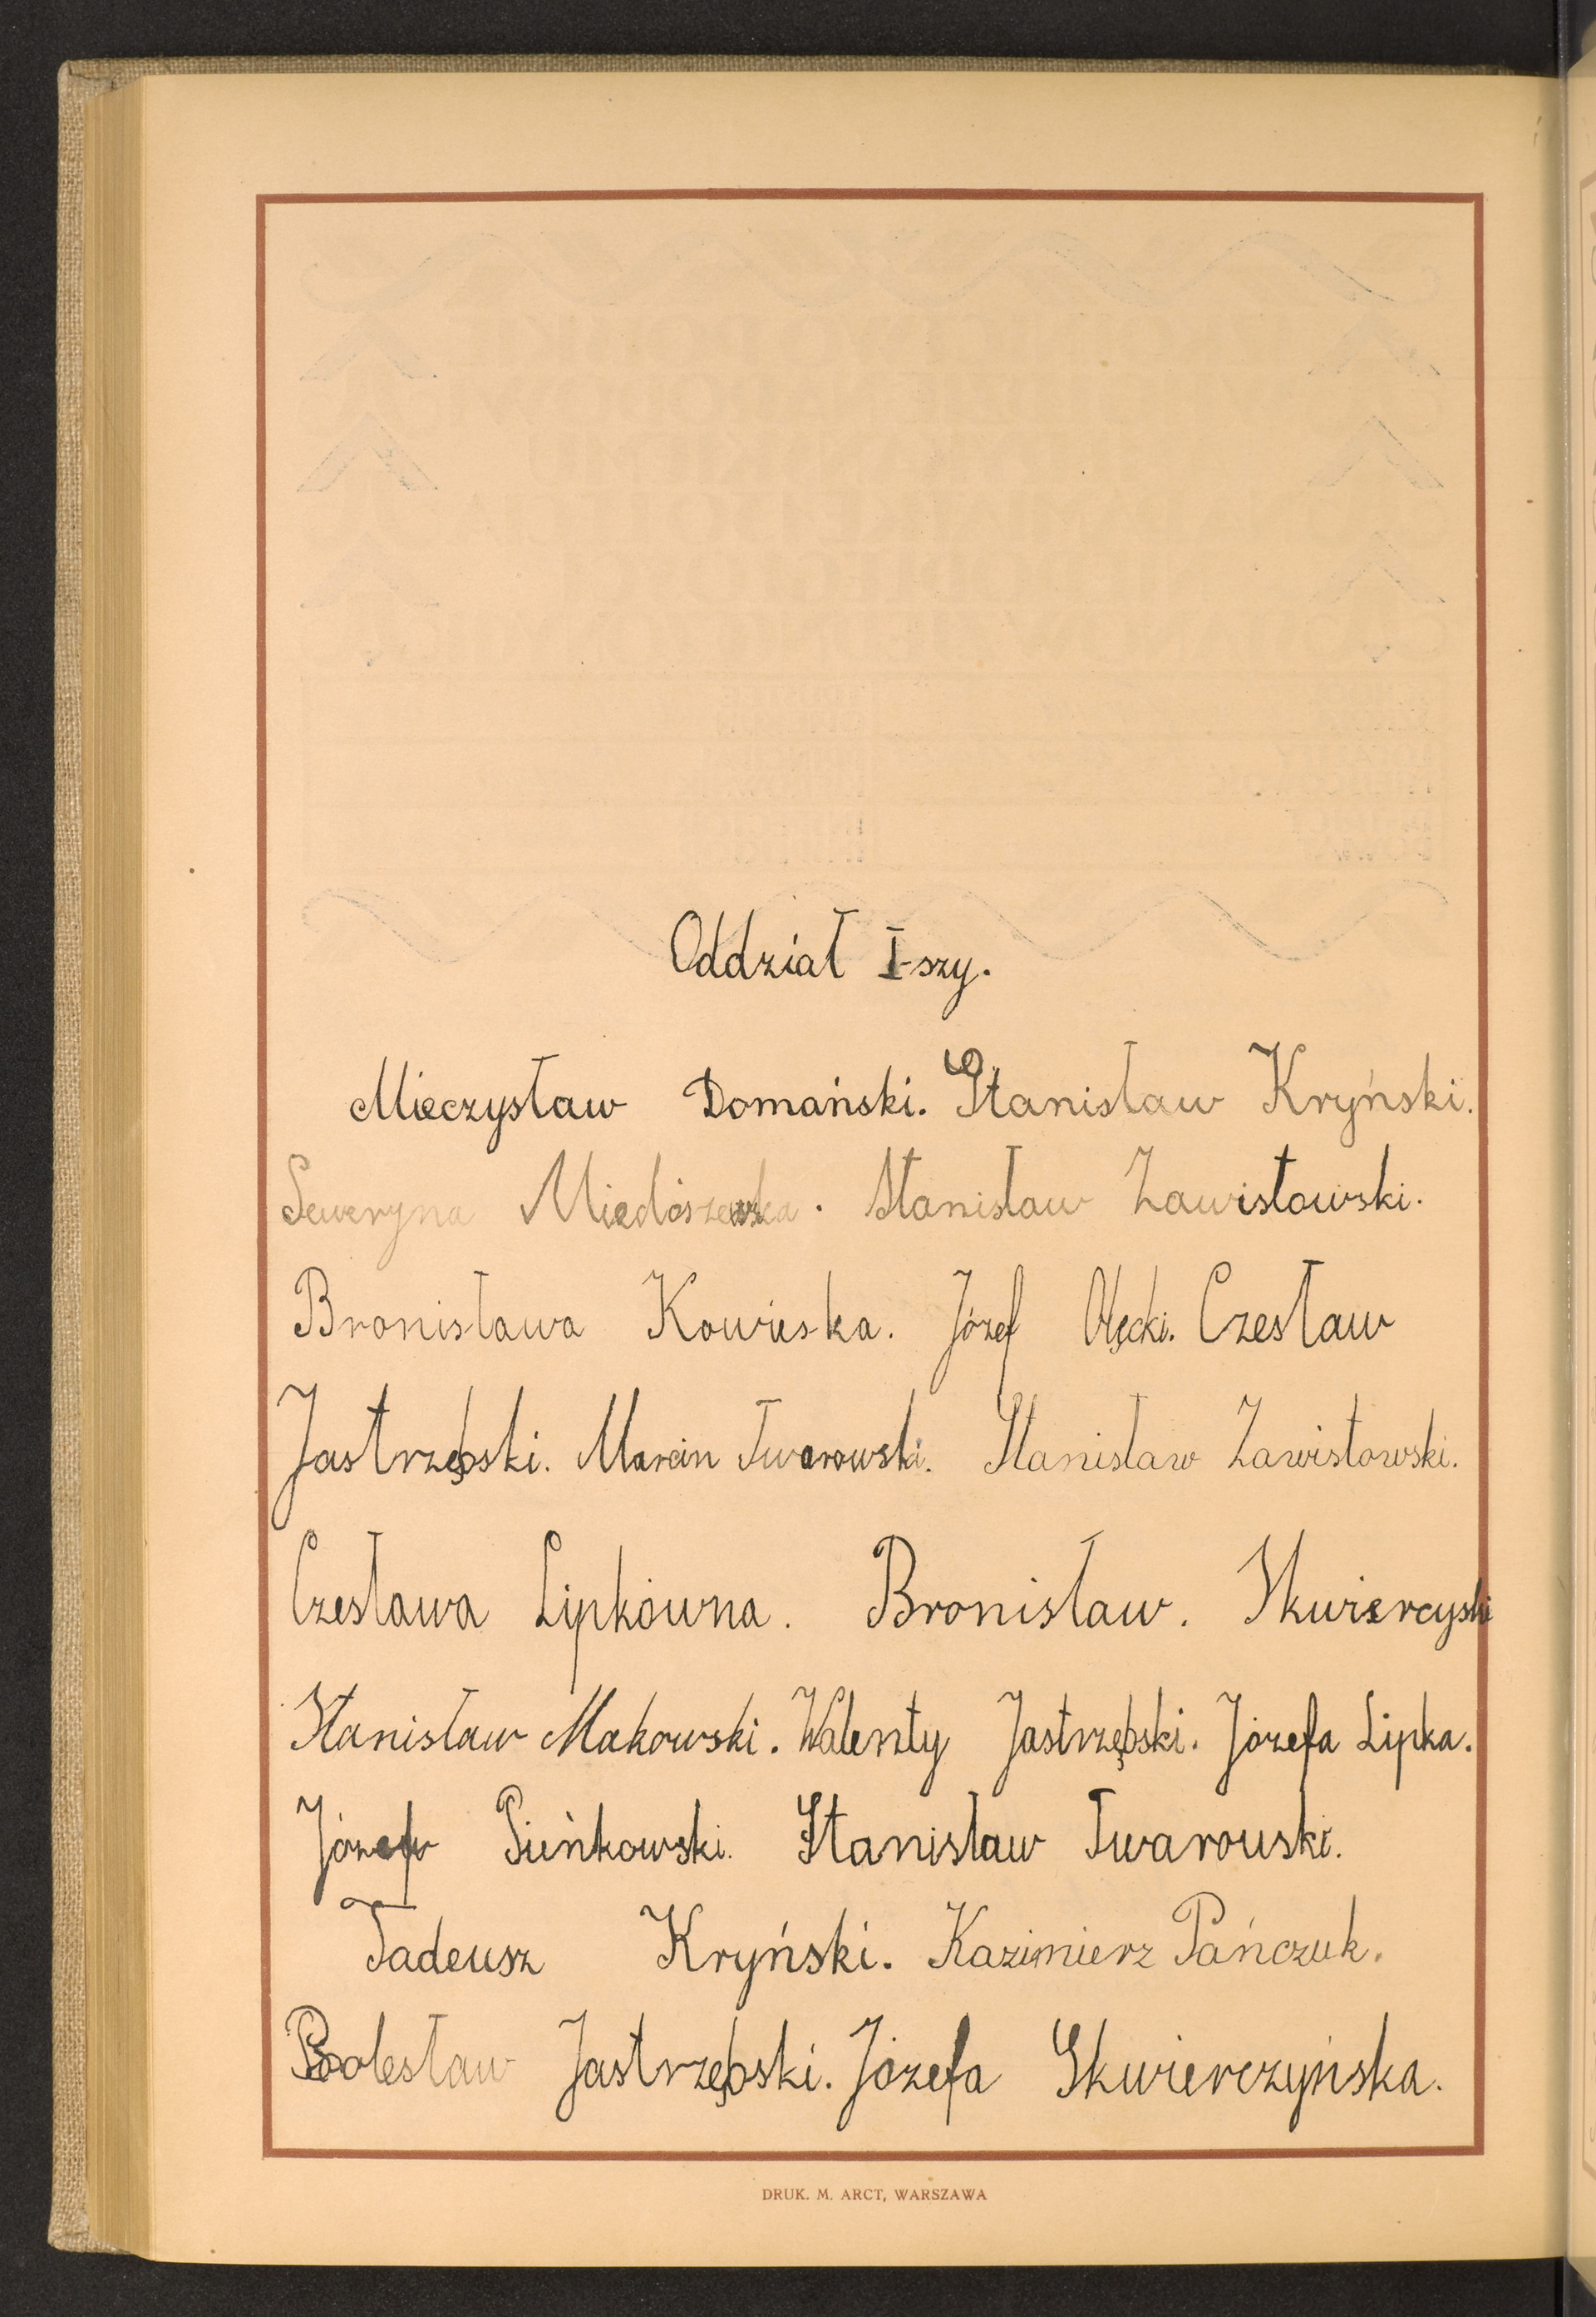 Oddział I-szy.
Mieczysław Domański. Stanisław Kryński.
Seweryna Miedoszewska. Stanisław Zawistowski.
Bronisława Kowieska. Józef Ołęcki. Czesław
Jastrzębski. Marcin Twarowski. Stanisław Zawistowski.
Czesława Lipkówna. Bronisław. Skwiercyski
Stanisław Makowski. Walenty Jastrzębski. Józefa Lipka.
Józef Pieńkowski. Stanisław Twarouski.
Tadeusz Kryński. Kazimierz Pańczuk.
Bolesław Jastrzębski. Józefa Skwierczyńska.
DRUK. M. ARCT, WARSZAWA